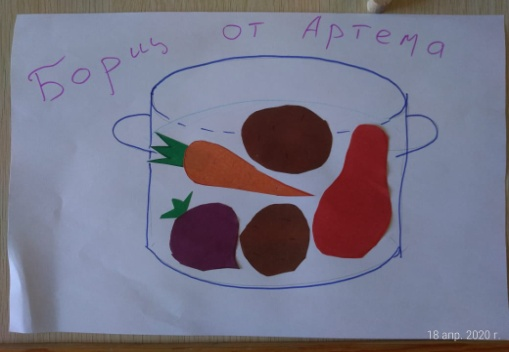 Борщ от Артема
18 апр. 2020 г.